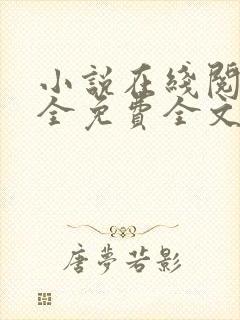 小説在綫閱
全免費全文
唐夢若影